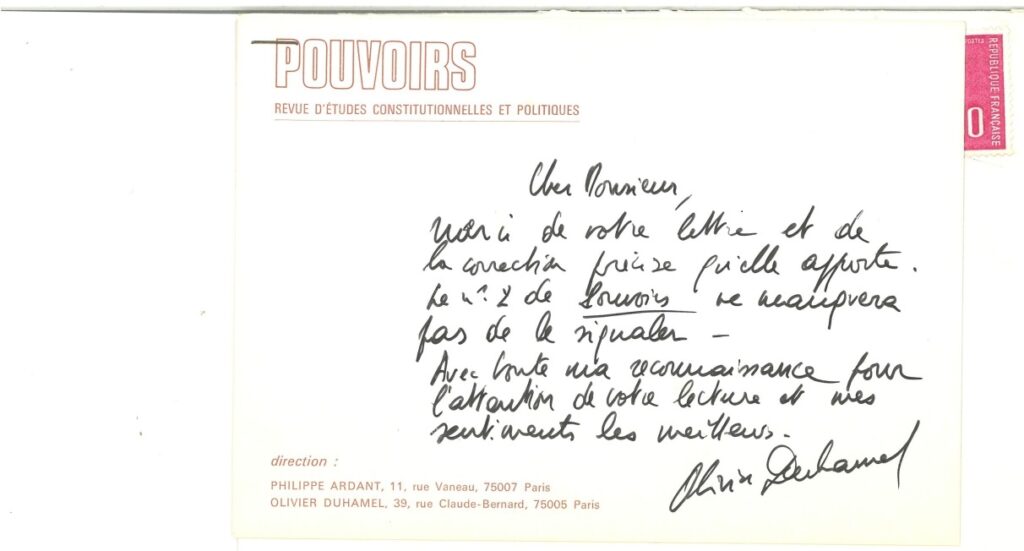 POUVOIRS
REVUE D'ÉTUDES CONSTITUTIONNELLES ET POLITIQUES
POSTES
REPUBLIQUE FRANÇAISE
0
Cher Monsieur,
Merci de votre lettre et de
la correction précise qu'elle apporte.
Le n° 2 de Pouvoirs ne manquera
pas de le signaler –
Avec toute ma reconnaissance pour
l'attention de votre lecture et mes
sentiments les meilleurs.
Olivier Duhamel
direction :
PHILIPPE ARDANT, 11, rue Vaneau, 75007 Paris
OLIVIER DUHAMEL, 39, rue Claude-Bernard, 75005 Paris